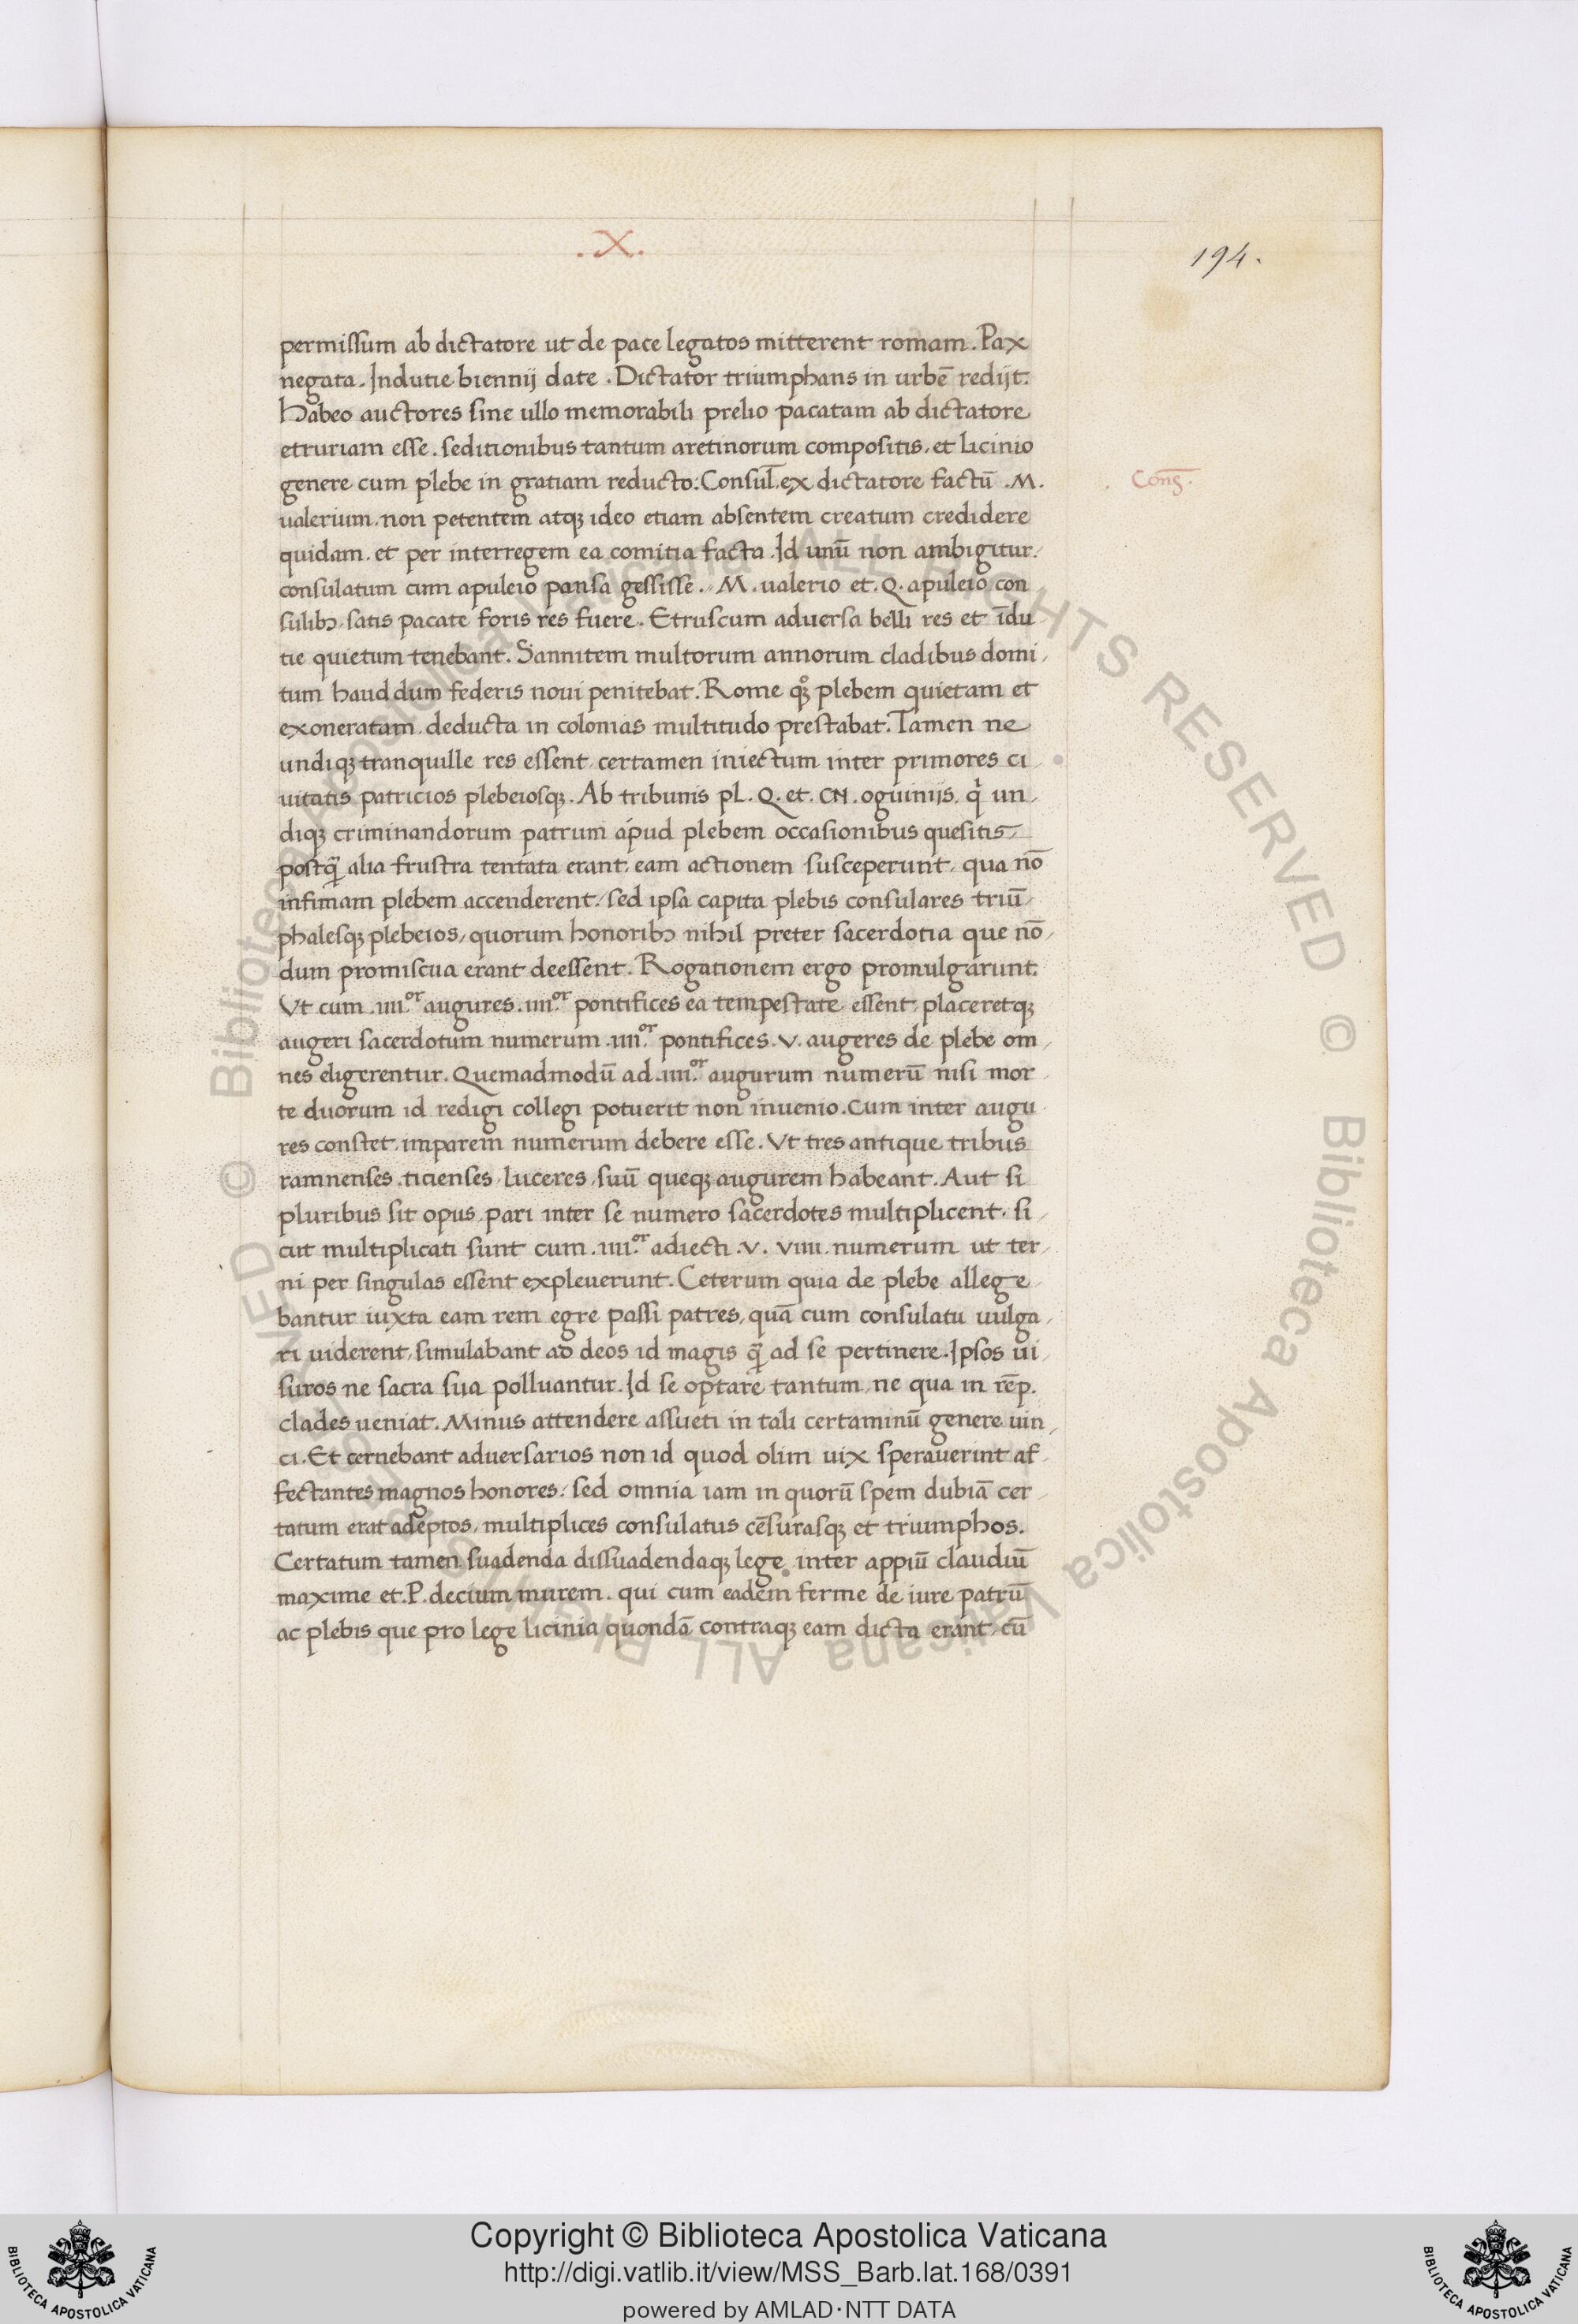 .X.
194.
permissum ab dictatore ut de pace legatos mitterent romam. Pax
negata. Indutie biennij date. Dictator triumphans in urbē redijt.
Habeo auctores sine ullo memorabili prelio pacatam ab dictatore
etruriam esse. seditionibus tantum aretinorum compositis. et licinio
genere cum plebe in gratiam reducto: Consul̄. ex dictatore factū .M.
Cons̄.
ualerium. non petentem atqꝫ ideo etiam absentem creatum credidere
quidam. et per interregem ea comitia facta. Id unū non ambigitur.
consulatum cum apuleio pansa gessisse. M. ualerio et. Q. apuleio con
sulibꝫ satis pacate foris res fuere. Etruscum aduersa belli res et īdu
tie quietum tenebant. Sannitem multorum annorum cladibus domi
tum haud dum federis noui penitebat. Rome qꝫͦ plebem quietam et
exoneratam deducta in colonias multitudo prestabat. Tamen ne
undiqꝫ tranquille res essent certamen iniectum inter primores ci
uitatis patricios plebeiosqꝫ. Ab tribunis pL. Q. et. CN. oguiniis. qͥ un
diqꝫ criminandorum patrum apud plebem occasionibus quesitis
postqꝫ̄ alia frustra tentata erant. eam actionem susceperunt, qua nō
infimam plebem accenderent. sed ipsa capita plebis consulares triū
phalesqꝫ plebeios, quorum honoribꝫ nihil preter sacerdotia que nō
dum promiscua erant deessent. Rogationem ergo promulgarunt.
Vt cum .iiii.or augures .iiii.or pontifices ea tempestate essent placeretqꝫ
augeri sacerdotum numerum .iiii.or pontifices .v. augeres de plebe om
nes eligerentur. Quemadmodū ad .iiii.or augurum numerū nisi mor
te duorum id redigi collegi potuerit non inuenio. Cum inter augu
res constet imparem numerum debere esse. Vt tres antique tribus
ramnenses. ticienses, luceres, suū queqꝫ augurem habeant. Aut si
pluribus sit opus pari inter se numero sacerdotes multiplicent. si
cut multiplicati sunt cum .iiii.or adiecti .v. viiii. numerum ut ter
ni per singulas essent expleuerunt. Ceterum quia de plebe allege
bantur iuxta eam rem egre passi patres, quā cum consulatu uulga
ri uiderent, simulabant ad deos id magis qꝫ̄ ad se pertinere. Ipsos ui
suros ne sacra sua polluantur. Id se optare tantum, ne qua in rēp.
clades ueniat. Minus attendere assueti in tali certaminū genere uin
ci. Et cernebant aduersarios non id quod olim uix sperauerint af
fectantes magnos honores. sed omnia iam in quorū spem dubiā cer
tatum erat adeptos, multiplices consulatus cēsurasqꝫ et triumphos.
Certatum tamen suadenda dissuadendaqꝫ lege inter appiū claudiū
maxime et. P. decium murem. qui cum eadem ferme de iure patrū
ac plebis que pro lege licinia quondā contraqꝫ eam dicta erant, cū
© Biblioteca Apostolica Vaticana ALL RIGHTS RESERVED © Biblioteca Apostolica Vaticana ALL RIGHTS RESERVED
Copyright © Biblioteca Apostolica Vaticana
http://digi.vatlib.it/view/MSS_Barb.lat.168/0391
powered by AMLAD·NTT DATA
BIBLIOTECA APOSTOLICA VATICANA
BIBLIOTECA APOSTOLICA VATICANA